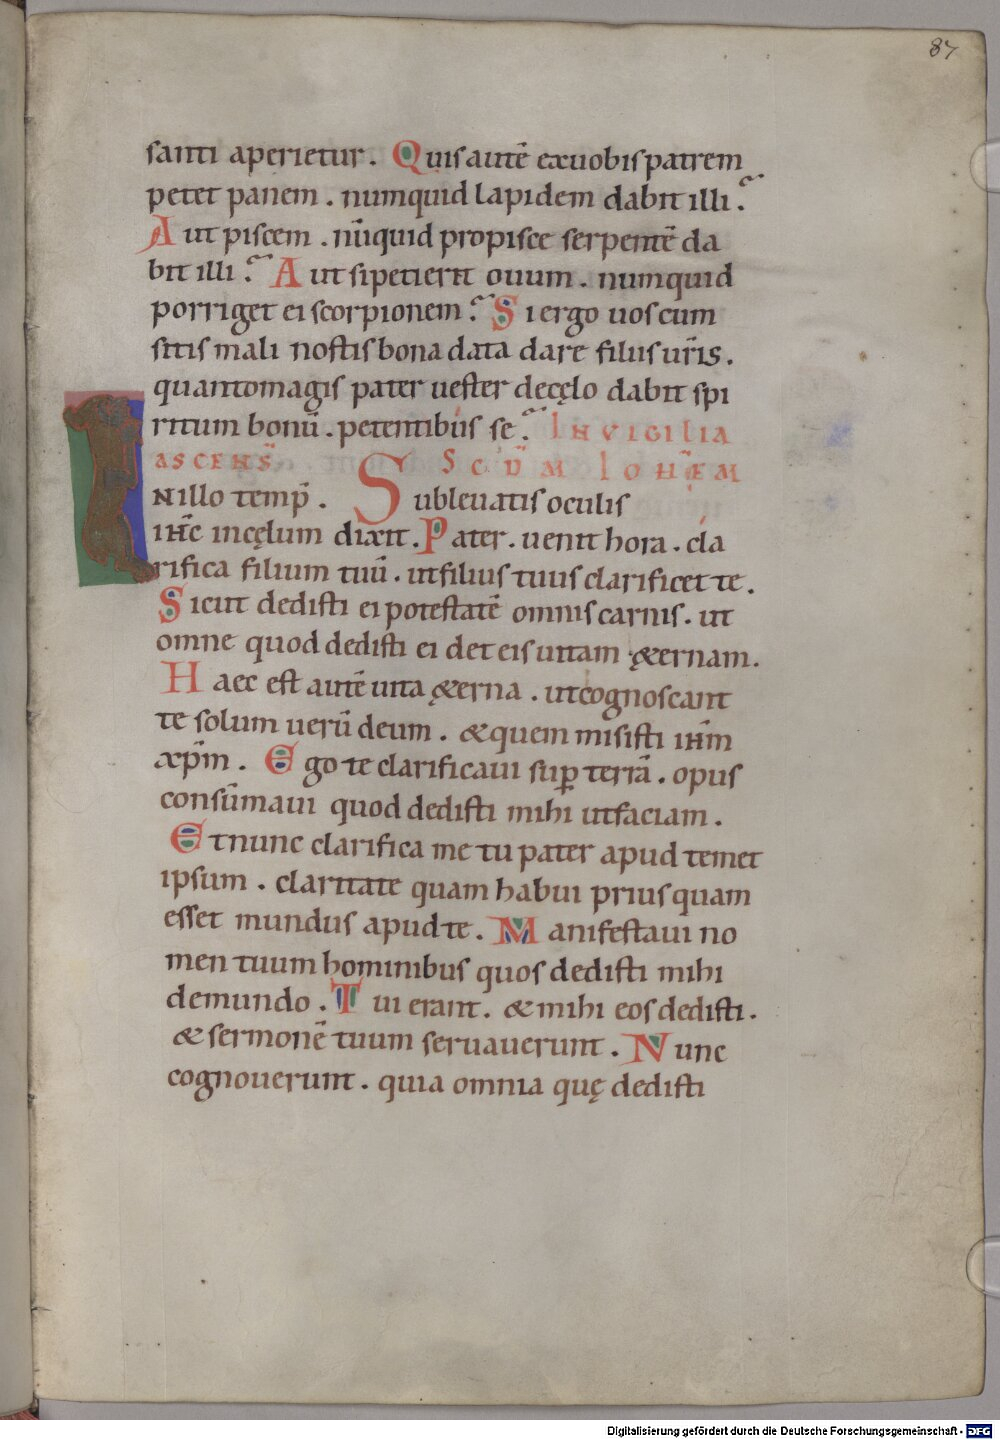 87
santi aperietur. Quis autē ex uobis patrem
petet panem. numquid lapidem dabit illi?
Aut piscem. nūquid pro pisce serpentē da
bit illi? Aut si petierit ouum. numquid
porriget ei scorpionem? Si ergo uos cum
sitis mali nostis bona data dare filiis ur̄is.
quanto magis pater uester de cęlo dabit spi
ritum bonū. petentibus se? IN VIGILIA
ASCENS̄. SCD̄M IOHN̄EM
IN illo temp̄. Subleuatis oculis
ihc̄ in cęlum dixit. Pater. uenit hora. cla
rifica filium tuū. ut filius tuus clarificet te.
Sicut dedisti ei potestatē omnis carnis. ut
omne quod dedisti ei det eis uitam &ęrnam.
Haec est autē uita &ęrna. ut cognoscant
te solum uerū deum. & quem misisti ihm̄
xp̄m. Ego te clarificaui sup̱ terrā. opus
consūmaui quod dedisti mihi ut faciam.
Et nunc clarifica me tu pater apud temet
ipsum. claritate quam habui prius quam
esset mundus apud te. Manifestaui no
men tuum hominibus quos dedisti mihi
de mundo. Tui erant. & mihi eos dedisti.
& sermonē tuum seruauerunt. Nunc
cognouerunt. quia omnia quę dedisti
Digitalisierung gefördert durch die Deutsche Forschungsgemeinschaft - DFG